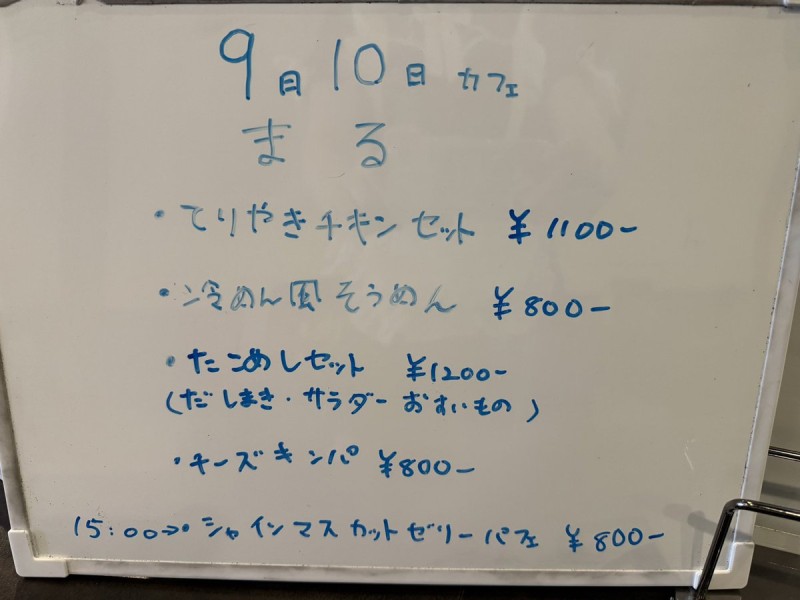 9月10日 カフェ
まる
・てりやきチキンセット ¥1100-
・冷めん風そうめん ¥800-
・たこめしセット ¥1200-
(だしまき・サラダー おすいもの)
・チーズキンパ ¥800-
15:00→・シャインマスカットゼリーパフェ ¥800-